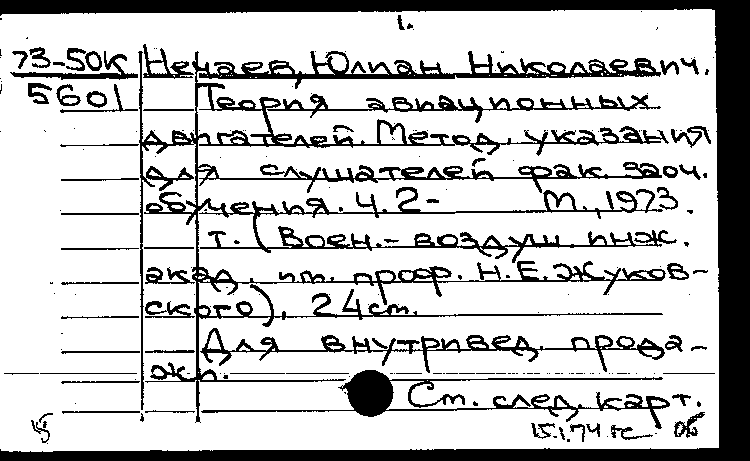 1.
73-50к Нечаев, Юлиан Николаевич.
5601 Теория авиационных
двигателей. Метод. указания
для слушателей фак. заоч.
обучения. Ч. 2- М., 1973.
т. (Воен.-воздуш. инж.
акад. им. проф. Н.Е. Жуков-
ского), 24 см.
Для внутривед. прода-
жи.
См. след. карт.
15.1.74